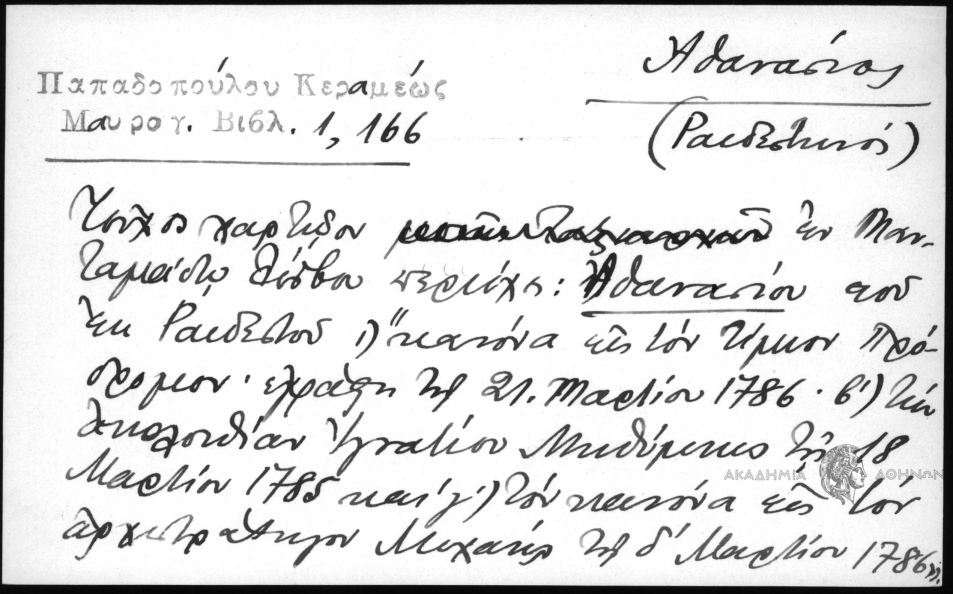 Ἀθανάσιος
Παπαδοπούλου Κεραμέως
Μαυρογ. Βιβλ. 1, 166
(Ραιδεστηνός)
Τεῦχος χαρτῷον ἐν Μαν-
ταμάδῳ Λέσβου περιέχει: Ἀθανασίου τοῦ
ἐκ Ραιδεστοῦ "κανόνα εἰς τόν τίμιον Πρό-
δρομον· ἐγράφη τῇ 21. Μαρτίου 1786· β') τήν
ἀκολουθίαν Ἰγνατίου Μηθύμνης τῇ 18
Μαρτίου 1785 καί γ') τόν κανόνα εἰς τόν
ἀρχιστράτηγον Μιχαήλ τῇ δ' Μαρτίου 1786".
ΑΚΑΔΗΜΙΑ ΑΘΗΝΩΝ